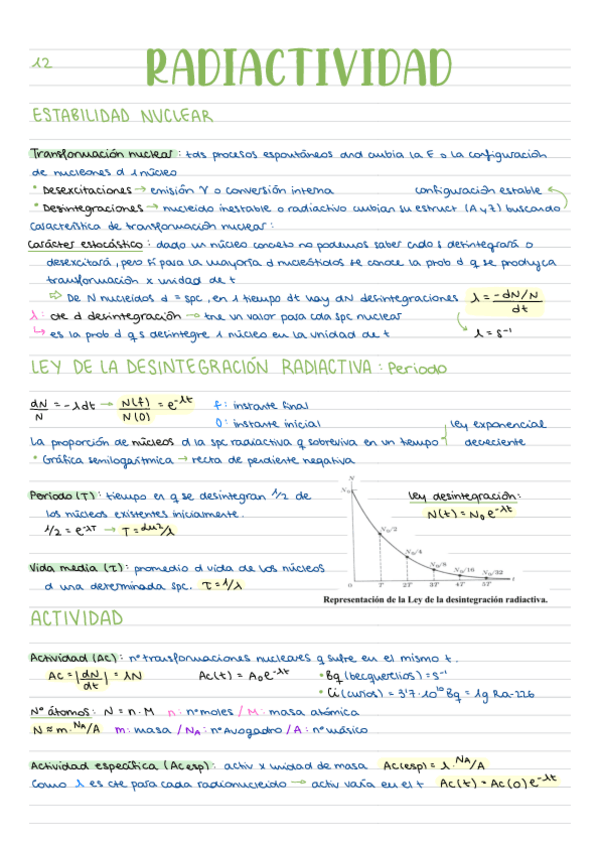 12
RADIACTIVIDAD
ESTABILIDAD NUCLEAR
Transformación nuclear: tds procesos espontáneos dnd cambia la E o la configuración
de nucleones d 1 núcleo
• Desexcitaciones → emisión γ o conversión interna configuración estable
• Desintegraciones → nucleido inestable o radiactivo cambian su estruct (A y Z) buscando
Característica de transformación nuclear:
Carácter estocástico: dado un núcleo concreto no podemos saber cndo s desintegrará o
desexcitará, pero sí para la mayoría d nucleótidos se conoce la prob d q se produzca
transformación x unidad de t
⇨ De N nucleidos d = spc, en 1 tiempo dt hay dN desintegraciones λ = -dN/N / dt
λ: cte d desintegración → tne un valor para cda spc nuclear
↳ es la prob d q s desintegre 1 núcleo en la unidad de t λ = s⁻¹
LEY DE LA DESINTEGRACIÓN RADIACTIVA: Periodo
dN/N = -λdt → N(f)/N(0) = e^-λt f: instante final
0: instante inicial ley exponencial
La proporción de núcleos d la spc radiactiva q sobreviva en un tiempo decreciente
• Gráfica semilogarítmica → recta de pendiente negativa
Periodo (T): tiempo en q se desintegran 1/2 de
los núcleos existentes inicialmente.
1/2 = e^-λT → T = ln2/λ
ley desintegración:
N(t) = N₀ e^-λt
N
N₀
N₀/2
N₀/4
N₀/8
N₀/16
N₀/32
0 T 2T 3T 4T 5T t
Vida media (τ): promedio d vida de los núcleos
d una determinada spc. τ = 1/λ
Representación de la Ley de la desintegración radiactiva.
ACTIVIDAD
Actividad (Ac): nº transformaciones nucleares q sufre en el mismo t.
Ac = |dN/dt| = λN Ac(t) = A₀e^-λt • Bq (becquerelios) = s⁻¹
• Ci (curios) = 3'7·10¹⁰ Bq = 1g Ra-226
Nº átomos: N = n·M n: nº moles / M: masa atómica
N ≈ m·NA/A m: masa / NA: nº avogadro / A: nº másico
Actividad específica (Ac esp): activ x unidad de masa Ac(esp) = λ·NA/A
Como λ es cte para cada radionucleido → activ varía en el t Ac(t) = Ac(0)e^-λt